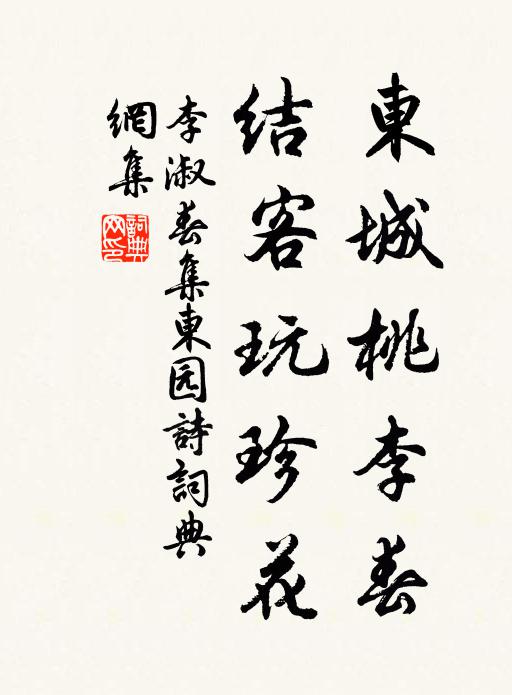 東城桃李春
結客玩珍花
李淑春集東园詩詞典
網集
詞典網印